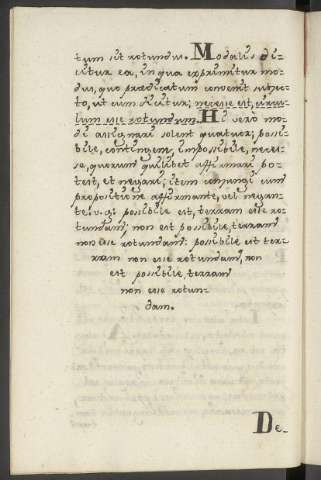 tum sit rotundu. Modalis di-
citur ea, in qua exprimitur mo-
dus, quo prædicatum convenit subjec-
to, ut cum dicitur; necesse est, circu-
lum esse rotundum. Hi verò mo-
di assignari solent quatuor; possi-
bile, contingens, impossibile, neces-
se, quorum quilibet affirmari po-
test, et negari; item conjungi cum
propositione affirmante, vel negan-
te: v.g: possibile est, terram esse ro-
tundam; non est possibile, terram
non esse rotundam: possibile est ter-
ram non esse rotundam, non
est possibile, terram
non esse rotun-
dam.
De-